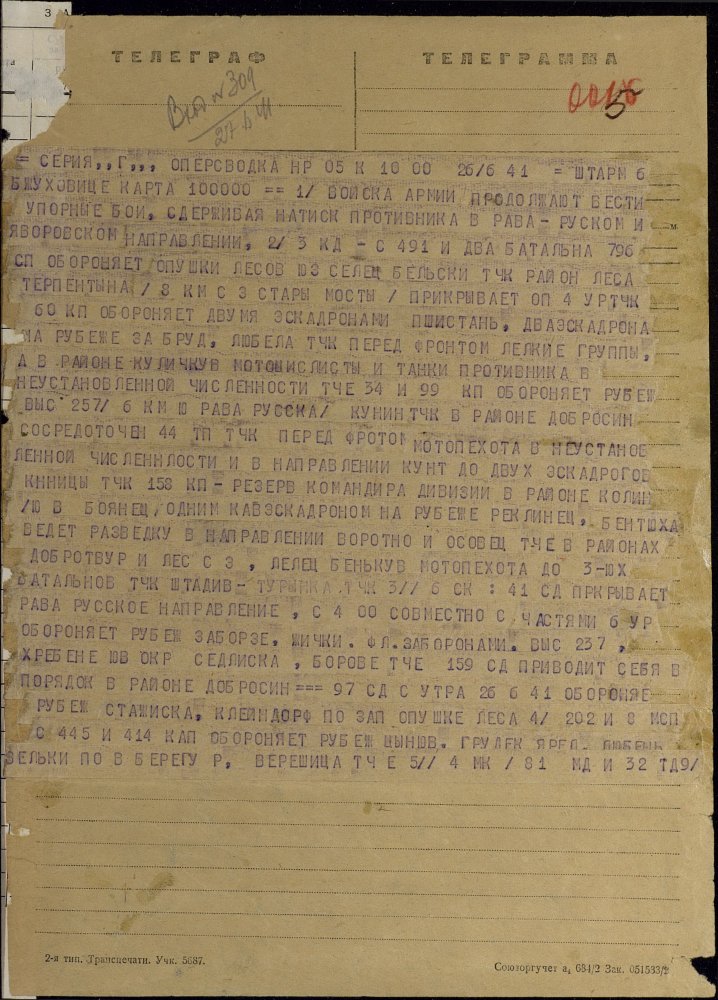 ТЕЛЕГРАФ
ТЕЛЕГРАММА
309
5
= СЕРИЯ,,Г,,, ОПЕРСВОДКА НР 05 К 10 00 26/6 41 = ШТАРМ 6
БЖУХОВИЦЕ КАРТА 100000 == 1/ ВОЙСКА АРМИИ ПРОДОЛЖАЮТ ВЕСТИ
УПОРНЫЕ БОИ, СДЕРЖИВАЯ НАТИСК ПРОТИВНИКА В РАВА-РУСКОМ И
ЯВОРОВСКОМ НАПРАВЛЕНИИ, 2/ 3 КД - С 491 И ДВА БАТАЛЬНА 796
СП ОБОРОНЯЕТ ОПУШКИ ЛЕСОВ ЮЗ СЕЛЕЦ БЕЛЬСКИ ТЧК РАЙОН ЛЕСА
ТЕРПЕНТЫНА / 8 КМ С З СТАРЫ МОСТЫ / ПРИКРЫВАЕТ ОП 4 УРТЧК
60 КП ОБОРОНЯЕТ ДВУМЯ ЭСКАДРОНАМИ ПШИСТАНЬ, ДВАЭСКАДРОНА
НА РУБЕЖЕ ЗАБРУД, ЛЮБЕЛА ТЧК ПЕРЕД ФРОНТОМ ЛЕЛКИЕ ГРУППЫ,
А В РАЙОНЕ КУЛИЧКУВ МОТОЦИСЛИСТЫ И ТАНКИ ПРОТИВНИКА В
НЕУСТАНОВЛЕННОЙ ЧИСЛЕННОСТИ ТЧЕ 34 И 99 КП ОБОРОНЯЕТ РУБЕЖ
ВЫС 257/ 6 КМ Ю РАВА РУССКА/ КУНИНТЧК В РАЙОНЕ ДОБРОСИН
СОСРЕДОТОЧЕН 44 ТП ТЧК ПЕРЕД ФРОТОМ МОТОПЕХОТА В НЕУСТАНОВ
ЛЕННОЙ ЧИСЛЕННЛОСТИ И В НАПРАВЛЕНИИ КУНТ ДО ДВУХ ЭСКАДРОГОВ
КННИЦЫ ТЧК 158 КП - РЕЗЕРВ КОМАНДИРА ДИВИЗИИ В РАЙОНЕ КОЛИН
/Ю В БОЯНЕЦ, ОДНИМ КАВЭСКАДРОНОМ НА РУБЕЖЕ РЕКЛИНЕЦ, БЕНТЮХА
ВЕДЕТ РАЗВЕДКУ В НАПРАВЛЕНИИ ВОРОТНО И ОСОВЕЦ ТЧЕ В РАЙОНАХ
ДОБРОТВУР И ЛЕС С З , ЛЕЛЕЦ БЕНЬКУВ МОТОПЕХОТА ДО 3-ЮХ
БАТАЛЬНОВ ТЧК ШТАДИВ- ТУРЫНКА.ТЧК 3// 6 СК : 41 СД ПРКРЫВАЕТ
РАВА РУССКОЕ НАПРАВЛЕНИЕ , С 4 00 СОВМЕСТНО С ЧАСТЯМИ 6 УР
ОБОРОНЯЕТ РУБЕЖ ЗАБОРЗЕ, ЖИЧКИ. ФЛ.ЗАБОРНАМИ. ВЫС 237 ,
ХРЕБЕНЕ ЮВ ОКР СЕДЛИСКА , БОРОВЕ ТЧЕ 159 СД ПРИВОДИТ СЕБЯ В
ПОРЯДОК В РАЙОНЕ ДОБРОСИН === 97 СД С УТРА 26 6 41 ОБОРОНЯЕ
РУБЕЖ СТАЖИСКА, КЛЕЙНДОРФ ПО ЗАП ОПУШКЕ ЛЕСА 4/ 202 И 8 МСП
С 445 И 414 КАП ОБОРОНЯЕТ РУБЕЖ ЦЫНЮВ. ГРУДЕК ЯГЕЛ. ЛЮБЕНЬ
ВЕЛЬКИ ПО В БЕРЕГУ Р. ВЕРЕШИЦА ТЧЕ 5// 4 МК / 81 МД И 32 ТД9/
2-я тип. Транспечати. Учк. 5687.
Союзоргучет а₄ 684/2 Зак. 051533/2